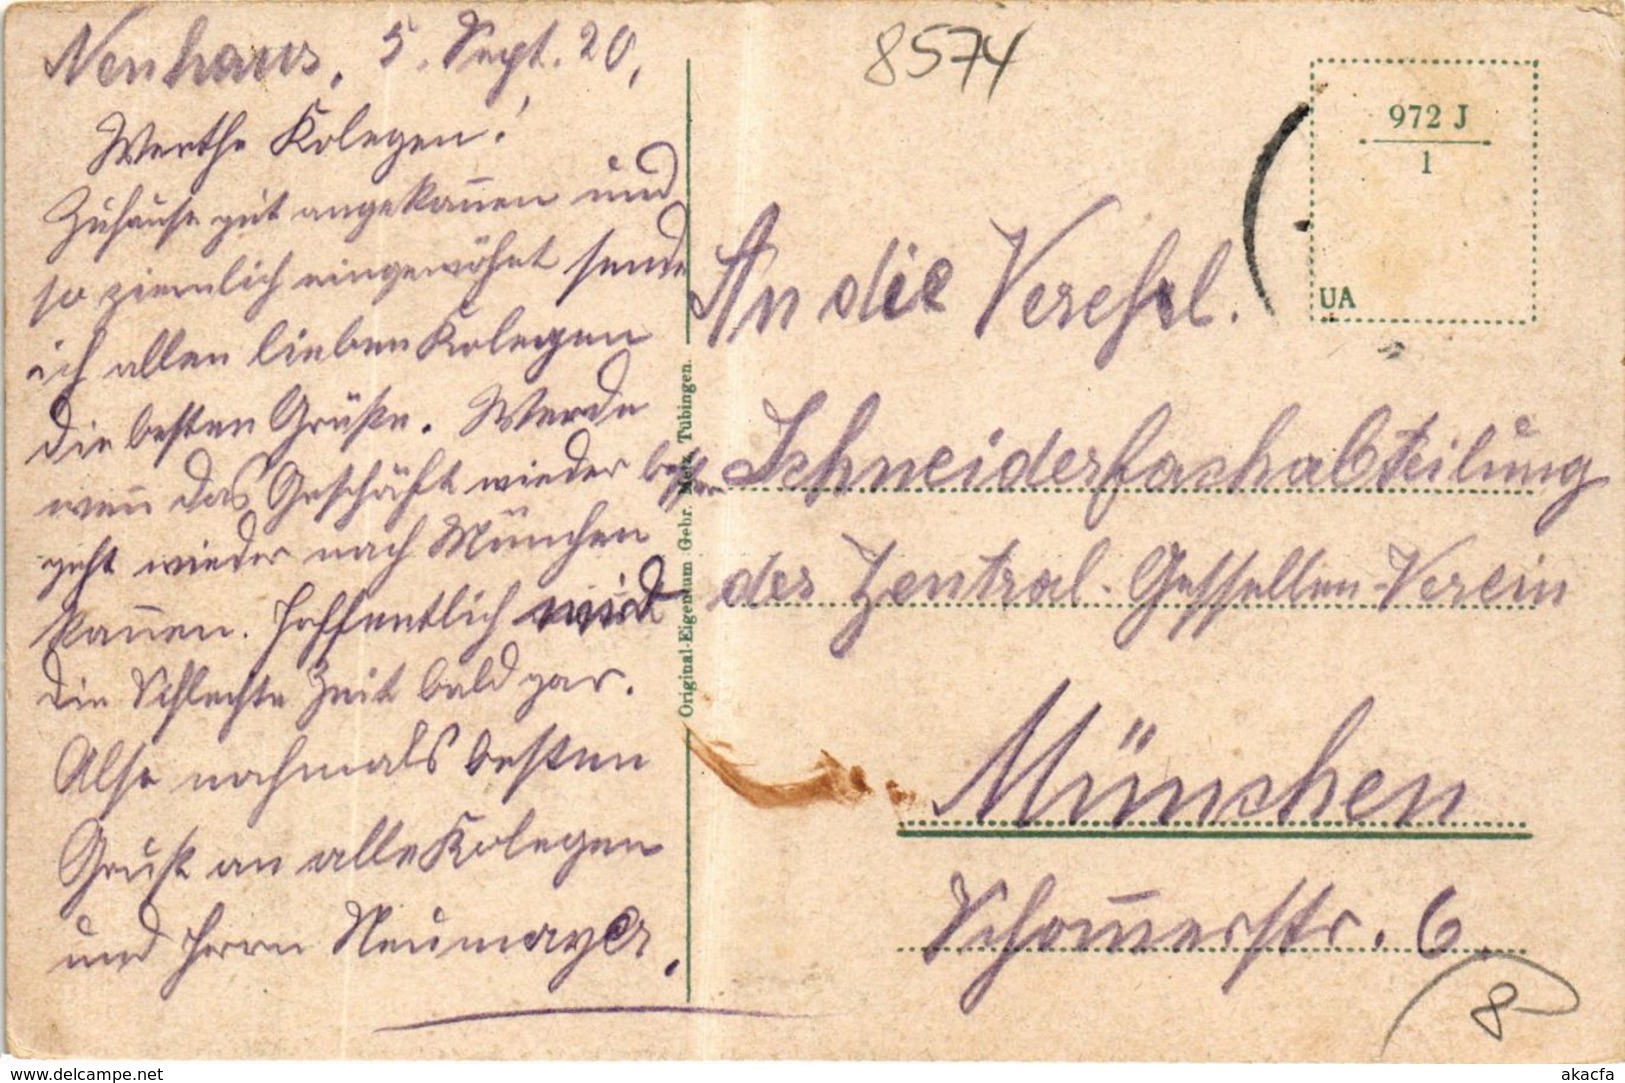 Neuhaus, 5. Sept. 20,
Werthe Kolegen!
Zuhause gut angekom̄en und
so ziemlich eingewöhnt sende
ich allen lieben Kolegen
die besten Grüße. Werde
wen̄ das Geschäft wieder besser
geht wieder nach München
kom̄en. Hoffentlich wird
die Schlechte Zeit bald gar.
Also nochmals besten
Gruß an alle Kolegen
und Herrn Neumayer.
Original-Eigentum Gebr. Metz, Tübingen.
8574
972 J
1
UA
An die Verehrl.
Schneiderfachabteilung
des Zentral-Gesellen-Verein
München
Schom̄erstr. 6
8
www.delcampe.net
akacfa